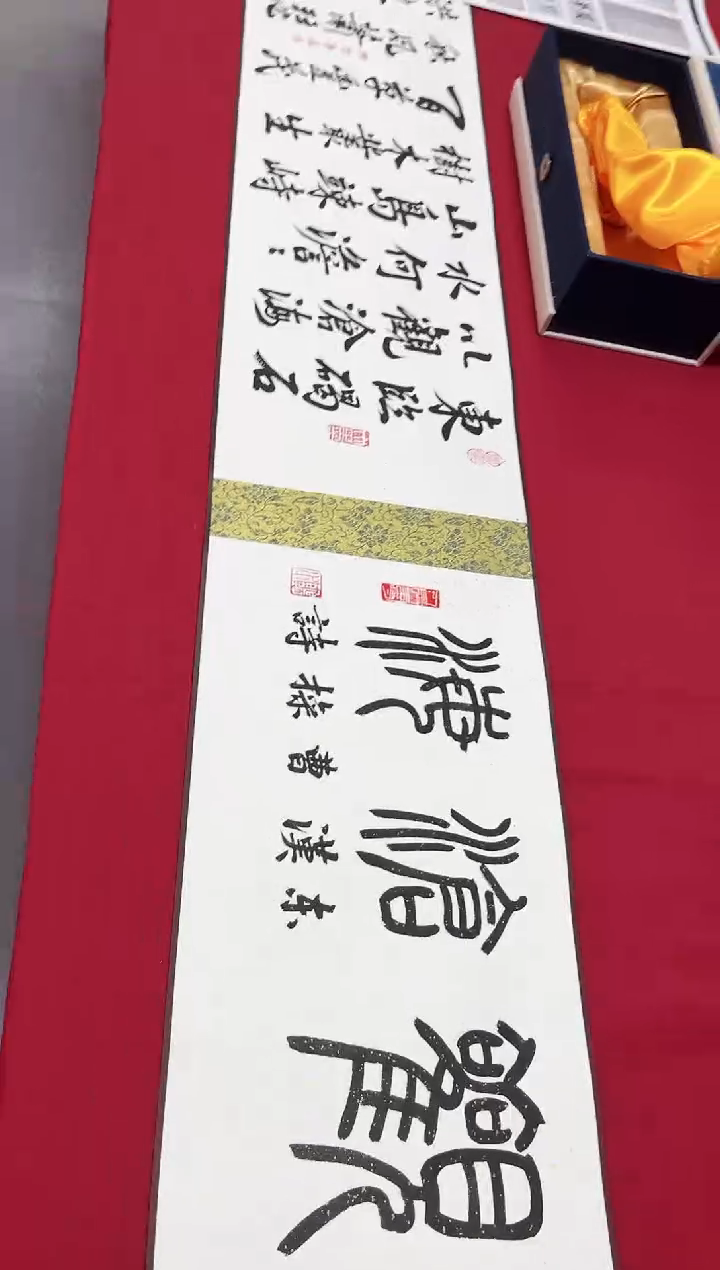 觀滄海
东漢曹操詩
東臨碣石
以觀滄海
水何澹〻
山島竦峙
樹木叢生
百草豐茂
秋風蕭瑟
洪